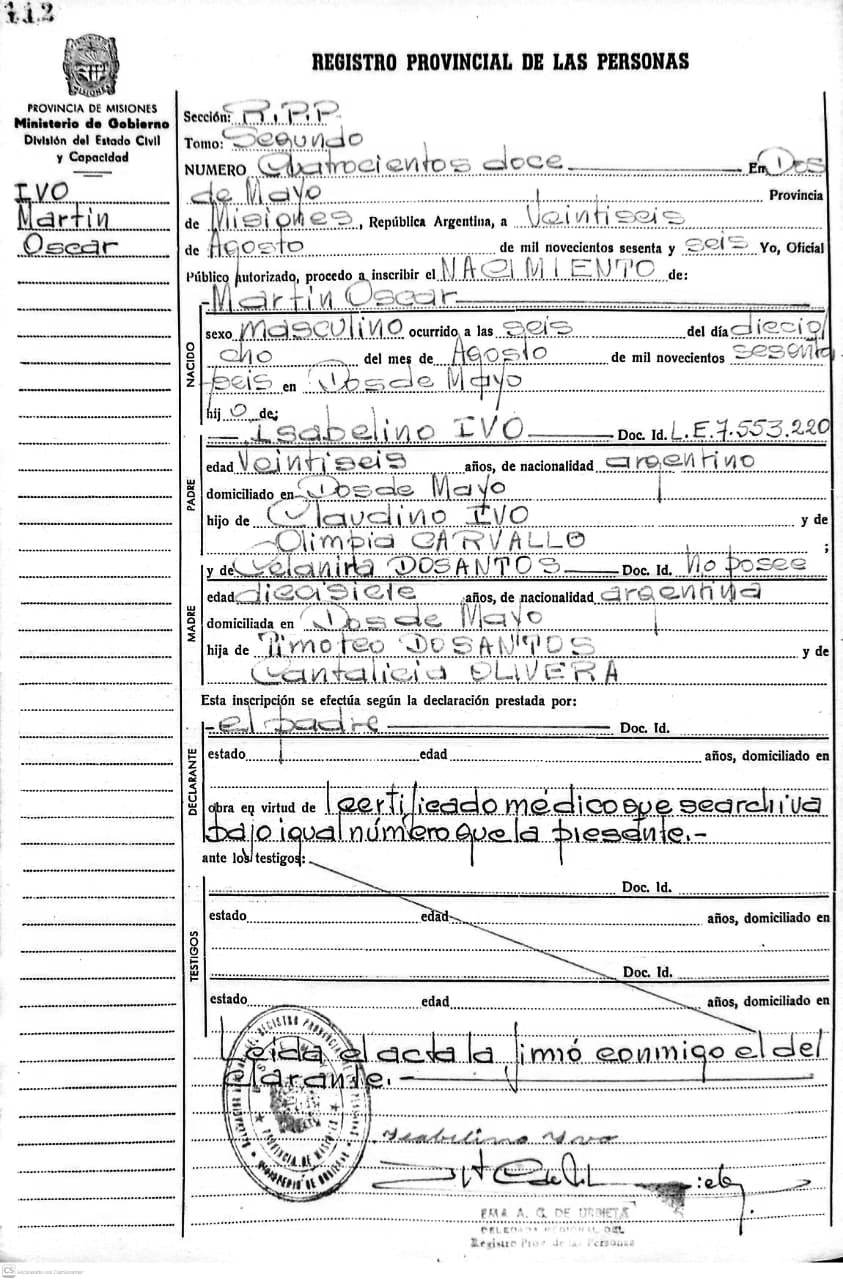 112
REGISTRO PROVINCIAL DE LAS PERSONAS
PROVINCIA DE MISIONES
Ministerio de Gobierno
División del Estado Civil
y Capacidad
IVO
Martin
Oscar
Sección: R.P.P.
Tomo: Segundo
NUMERO Cuatrocientos doce En Dos
de Mayo Provincia
de Misiones, República Argentina, a Veintiseis
de Agosto de mil novecientos sesenta y seis Yo, Oficial
Público autorizado, procedo a inscribir el NACIMIENTO de:
Martin Oscar
NACIDO
sexo masculino ocurrido a las seis del día diecio
cho del mes de Agosto de mil novecientos sesenta
seis en Dos de Mayo
hij o de:
Isabelino IVO Doc. Id. L.E.7.553.220
PADRE
edad Veintiseis años, de nacionalidad argentino
domiciliado en Dos de Mayo
hijo de Claudino IVO y de
Olimpia CARVALLO ;
y de Celanira DOSANTOS Doc. Id. No posee
MADRE
edad diecisiete años, de nacionalidad argentina
domiciliada en Dos de Mayo
hija de Timoteo DOSANTOS y de
Cantalicia OLIVERA
Esta inscripción se efectúa según la declaración prestada por:
el padre Doc. Id.
DECLARANTE
estado edad años, domiciliado en
obra en virtud de certificado médico que se archiva
bajo igual número que la presente.-
ante los testigos:
Doc. Id.
TESTIGOS
estado edad años, domiciliado en
Doc. Id.
estado edad años, domiciliado en
Leida el acta la firmó conmigo el de
clarante.-
Isabelino Yvo
EMA A. G. DE URBIETA
DELEGADA REGIONAL DEL
Registro Prov. de las Personas
PROVINCIA DE MISIONES
CS